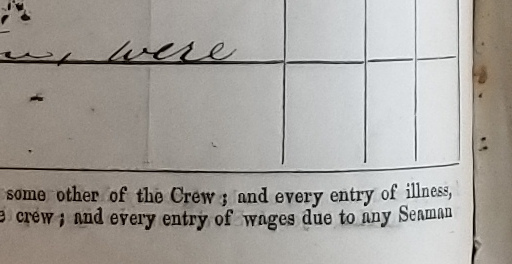 were
some other of the Crew; and every entry of illness,
crew; and every entry of wages due to any Seaman